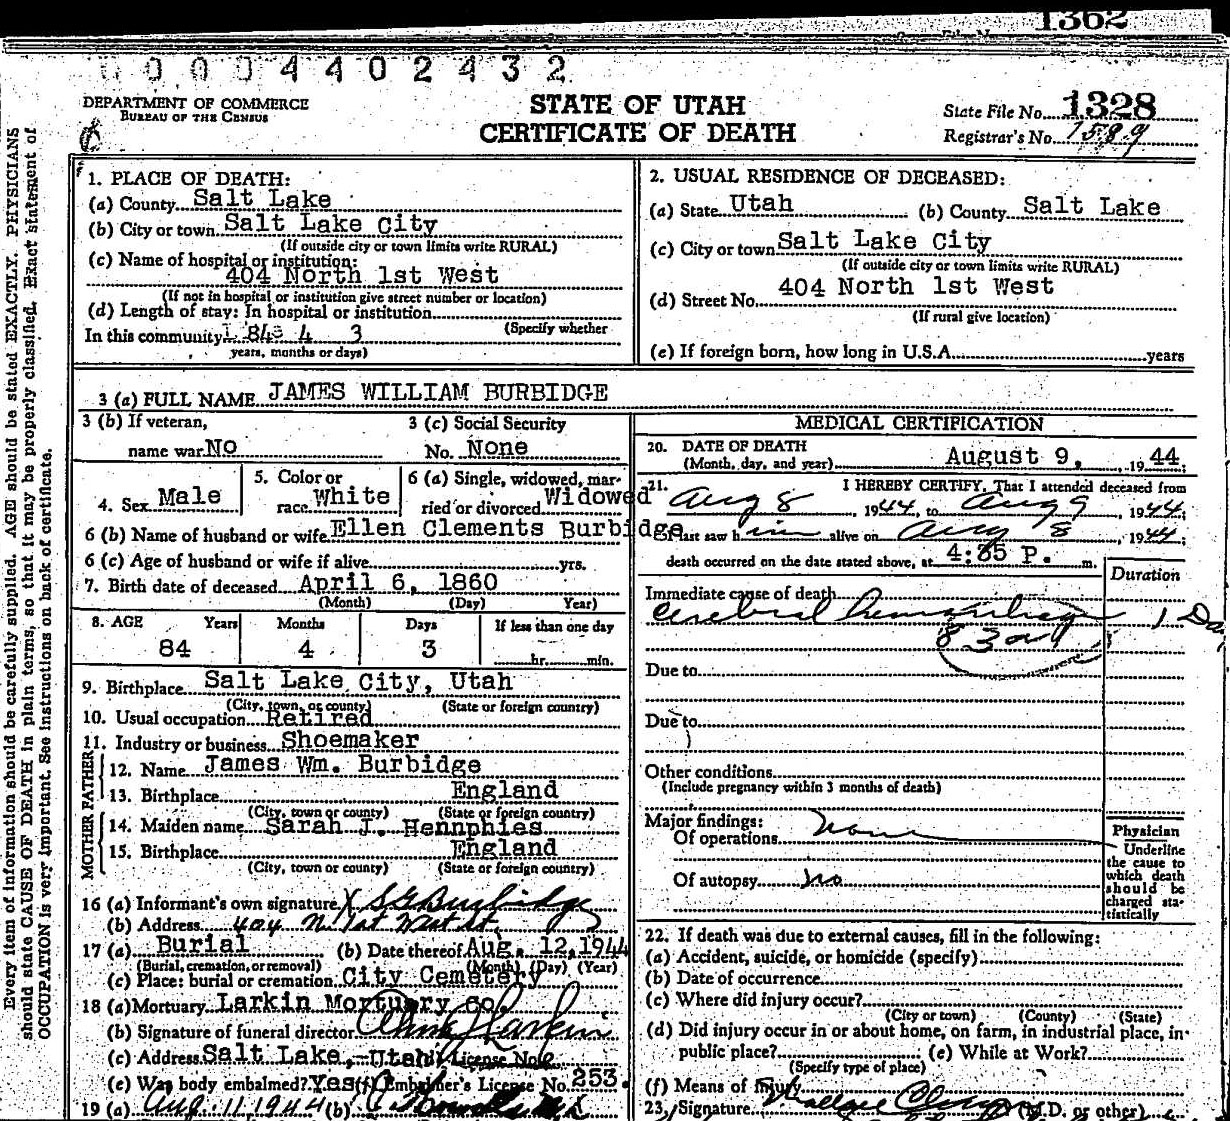 1362
0 0 0 4 4 0 2 4 3 2
DEPARTMENT OF COMMERCE
BUREAU OF THE CENSUS
STATE OF UTAH
CERTIFICATE OF DEATH
State File No. 1328
Registrar's No. 1589
Every item of information should be carefully supplied. AGE should be stated EXACTLY. PHYSICIANS
should state CAUSE OF DEATH in plain terms, so that it may be properly classified. Exact statement of
OCCUPATION is very important. See instructions on back of certificate.
1. PLACE OF DEATH:
(a) County Salt Lake
(b) City or town Salt Lake City
(If outside city or town limits write RURAL)
(c) Name of hospital or institution:
404 North 1st West
(If not in hospital or institution give street number or location)
(d) Length of stay: In hospital or institution
(Specify whether
In this community 84 4 3
years, months or days)
2. USUAL RESIDENCE OF DECEASED:
(a) State Utah (b) County Salt Lake
(c) City or town Salt Lake City
(If outside city or town limits write RURAL)
(d) Street No. 404 North 1st West
(If rural give location)
(e) If foreign born, how long in U.S.A. years
3 (a) FULL NAME JAMES WILLIAM BURBIDGE
3 (b) If veteran,
name war No
3 (c) Social Security
No. None
4. Sex Male
5. Color or
race White
6 (a) Single, widowed, mar-
ried or divorced Widowed
6 (b) Name of husband or wife Ellen Clements Burbidge
6 (c) Age of husband or wife if alive yrs.
7. Birth date of deceased April 6, 1860
(Month) (Day) Year)
8. AGE Years Months Days If less than one day
84 4 3 hr. min.
9. Birthplace Salt Lake City, Utah
(City, town, or county) (State or foreign country)
10. Usual occupation Retired
11. Industry or business Shoemaker
FATHER
12. Name James Wm. Burbidge
13. Birthplace England
(City, town or county) (State or foreign country)
MOTHER
14. Maiden name Sarah J. Hennphies
15. Birthplace England
(City, town or county) (State or foreign country)
16 (a) Informant's own signature X S G Burbidge
(b) Address 404 N. 1st West St.
17 (a) Burial (b) Date thereof Aug. 12, 1944
(Burial, cremation, or removal) (Month) (Day) (Year)
(c) Place: burial or cremation City Cemetery
18 (a) Mortuary Larkin Mortuary Co
(b) Signature of funeral director Larkin
(c) Address Salt Lake, Utah License No.
(e) Was body embalmed? Yes (f) Embalmer's License No. 253.
19 (a) Aug. 11, 1944 (b)
MEDICAL CERTIFICATION
20. DATE OF DEATH
(Month, day, and year) August 9, 1944;
21. I HEREBY CERTIFY, That I attended deceased from
Aug 8, 1944, to Aug 9, 1944;
I last saw him alive on Aug 8, 1944;
death occurred on the date stated above, at 4:35 P. m.
Duration
Immediate cause of death
Cerebral hemorrhage 1 Da
83a
Due to
Due to
Other conditions
(Include pregnancy within 3 months of death)
Major findings:
Of operations None
Of autopsy No
Physician
Underline
the cause to
which death
should be
charged sta-
tistically
22. If death was due to external causes, fill in the following:
(a) Accident, suicide, or homicide (specify)
(b) Date of occurrence
(c) Where did injury occur?
(City or town) (County) (State)
(d) Did injury occur in or about home, on farm, in industrial place, in
public place? (e) While at Work?
(Specify type of place)
(f) Means of injury
23. Signature Wallace (M.D. or other)